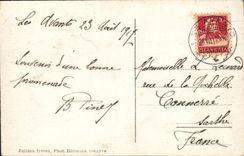 Les Avants 23 Août 191
Souvenir d'une bonne
promenade
B Pinel
HELVETIA
Mademoiselle L. Leonard
rue de la Rochelle
Connerré
Sarthe
France
Jullien frères, Phot. Editeurs, Genève